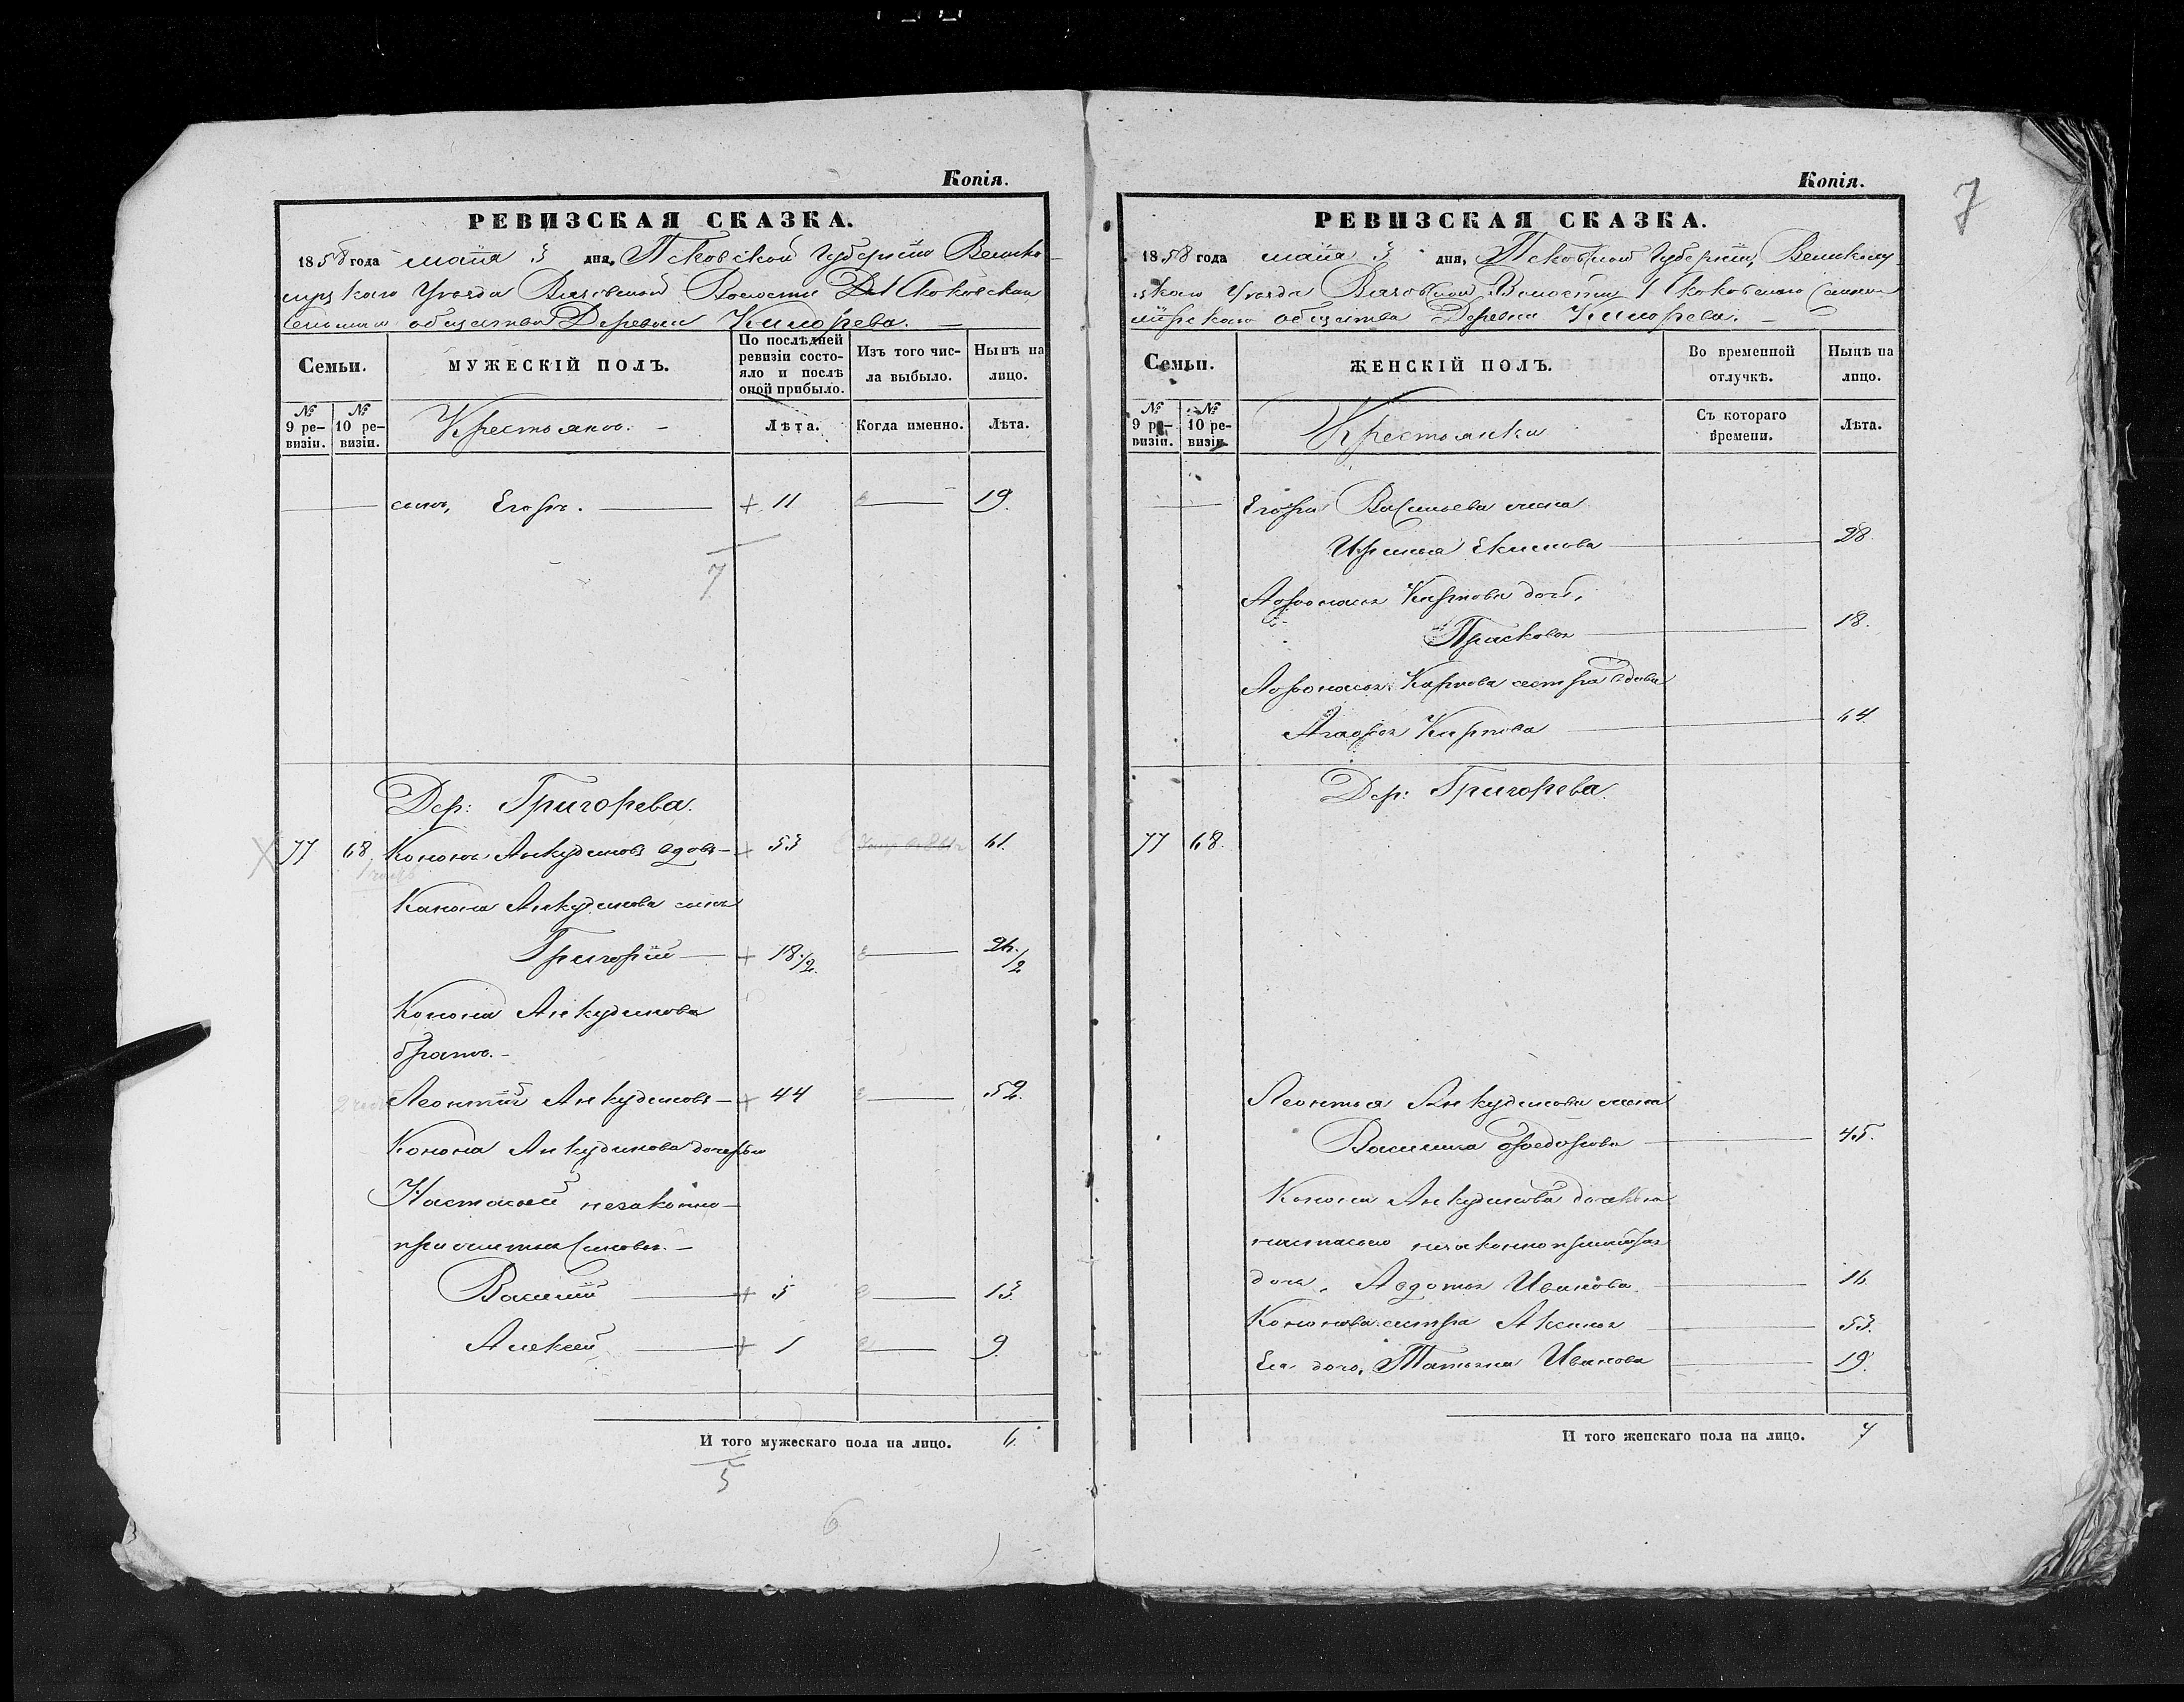 Копія.
РЕВИЗСКАЯ СКАЗКА.
1858 года мая 3 дня, Псковской Губерніи Велико-
луцкаго Уѣзда Волости
общества Деревни
Семьи.
МУЖЕСКІЙ ПОЛЪ.
По послѣдней ревизіи состо-яло и послѣ оной прибыло.
Изъ того чис-ла выбыло.
Нынѣ на лицо.
№ 9 ре-визіи.
№ 10 ре-визіи.
Крестьянъ.
Лѣта.
Когда именно.
Лѣта.
сынъ, Егоръ. + 11 19.
7
Дер: Григорева.
77 68. Кононъ Анкудиновъ вдовъ + 53 61.
Конона Анкудинова сынъ
Григорій + 18 1/2 26 1/2
Конона Анкудинова
братъ.
Леонтій Анкудиновъ + 44 52.
Конона Анкудинова дочерьи
Настасьи незаконно-
прижитыя сыновья.
Василій + 5 13.
Алексей + 1 9.
И того мужескаго пола на лицо. 6.
5
6
Копія.
7
РЕВИЗСКАЯ СКАЗКА.
1858 года мая 3 дня, Псковской Губерніи, Великолу-
цкаго Уѣзда Волости
общества Деревни
Семьи.
ЖЕНСКІЙ ПОЛЪ.
Во временной отлучкѣ.
Нынѣ на лицо.
№ 9 ре-визіи.
№ 10 ре-визіи.
Крестьянки
Съ котораго времени.
Лѣта.
Егора Васильева жена
Ирина Екимова 28
Афонасья Карпова дочь,
Прасковья 18.
Афонасья Карпова сестра вдова
Агафья Карпова 64.
Дер: Григорева.
77 68.
Леонтья Анкудинова жена
Василиса Федорова 45.
Конона Анкудинова дочерью
настасьею незаконноприжитая
дочь, Авдотья Иванова. 16
Кононова сестра Аксинья 53.
Ея дочь, Татьяна Иванова 19.
И того женскаго пола на лицо. 7